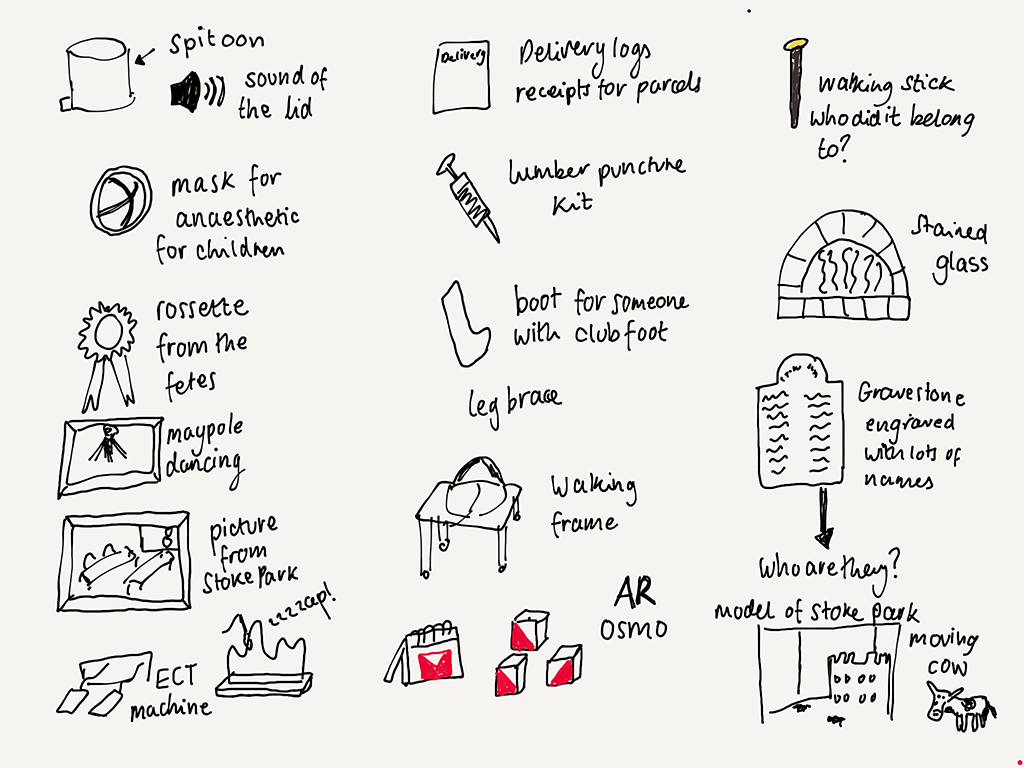 Spitoon
sound of
the lid
mask for
anaesthetic
for children
rossette
from the
fetes
maypole
dancing
picture
from
Stoke Park
zzzzap!
ECT
machine
Delivery
Delivery logs
receipts for parcels
lumber puncture
kit
boot for someone
with club foot
leg brace
Walking
frame
AR
OSMO
walking stick
who did it belong
to?
Stained
glass
Gravestone
engraved
with lots of
names
Who are they?
model of Stoke Park
moving
cow